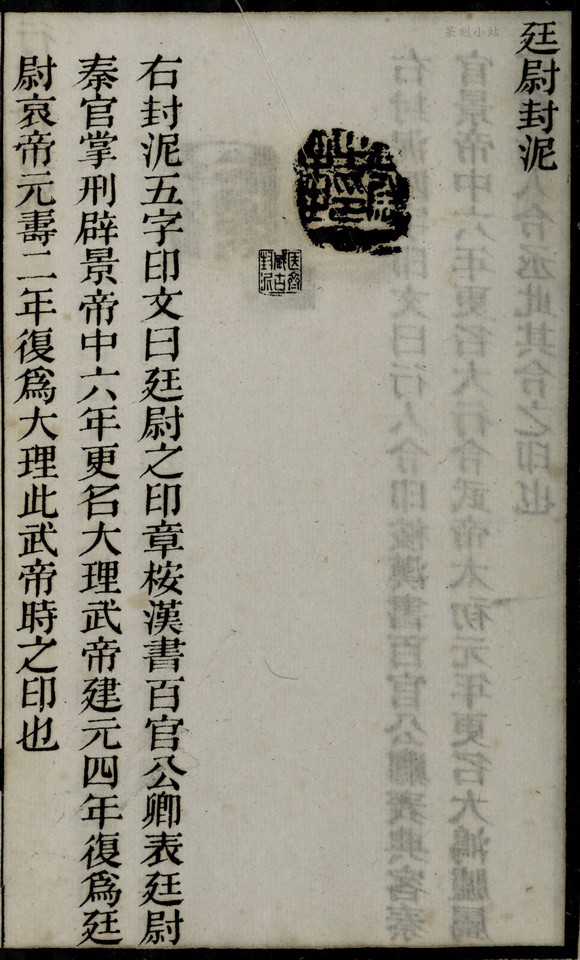 廷尉封泥
右封泥五字印文曰廷尉之印章桉漢書百官公卿表廷尉
秦官掌刑辟景帝中六年更名大理武帝建元四年復爲廷
尉哀帝元壽二年復爲大理此武帝時之印也
篆刻小站